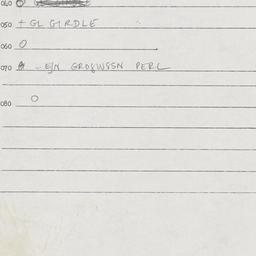 040 O
050 + GL GIRDLE
060 O
070 - E/N PERL
080 O